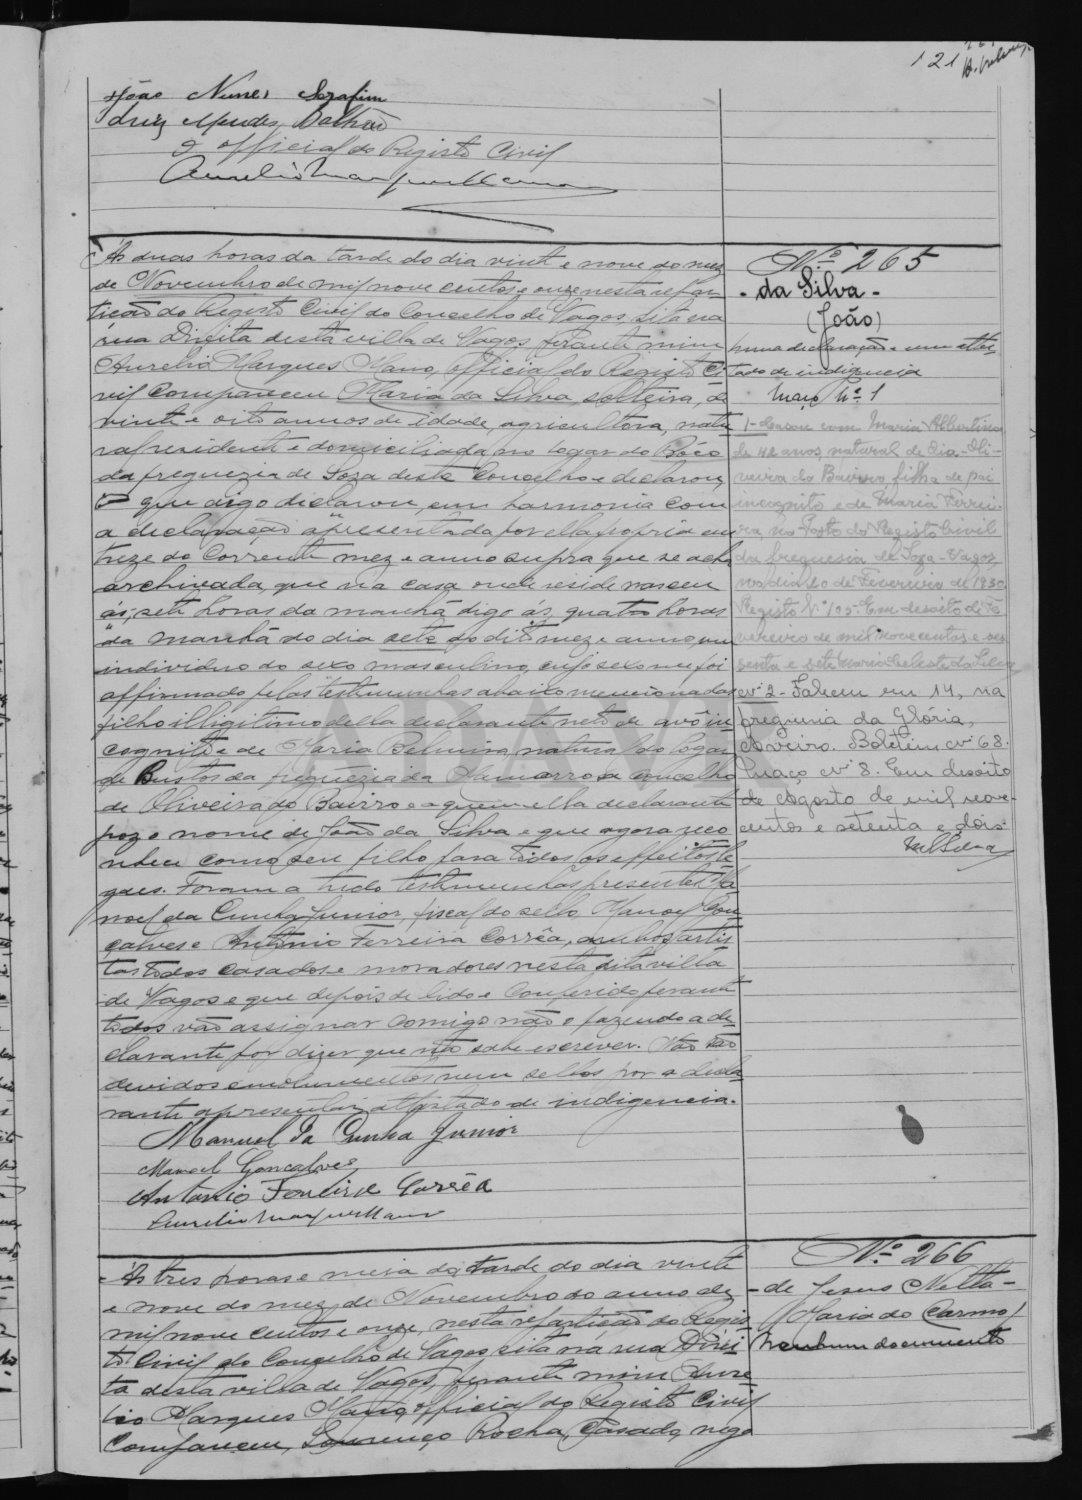 121
João Nunes Serafim
Luiz Mendes Bolhão
O official do Registo Civil
Aurelio Marques Mano
Ás duas horas da tarde do dia vinte e nove do mez
de Novembro de mil nove centos e onze nesta repar-
tição do Registo Civil do Concelho de Vagos, sita na
rua Direita desta villa de Vagos, perante mim
Aurelio Marques Mano, official do Registo Ci-
vil compareceu Maria da Silva, solteira, de
vinte e oito annos de idade, agricultora, natu-
ral residente e domiciliada no logar do Bôco
da freguezia de Soza deste Concelho e declarou
que digo declarou em harmonia com
a declaração apresentada por ella propria em
treze do corrente mez e anno supra que se acha
archivada, que na casa onde reside nasceu
ás, sete horas da manhã digo ás, quatro horas
da manhã do dia sete do dito mez e anno, um
individuo do sexo masculino, cujo sexo me foi
affirmado pelas testimunhas abaixo mencionadas
filho illigitimo della declarante neto de avô in-
cognito e de Maria Belmira, natural do logar
de Bustos da freguezia da Mamarrosa concelho
de Oliveira do Bairro e a quem ella declarante
poz o nome de João da Silva e que agora reco-
nhece como seu filho para todos os effeitos le-
gaes. Foram a tudo testimunhas presentes Ma-
noel da Cunha Junior, fiscal do sello, Manoel Gon-
çalves e Antonio Ferreira Corrêa, ambos artis-
tas todos casados e moradores nesta dita villa
de Vagos e que depois de lido e conferido perante
todos vão assignar comigo não o fazendo a de-
clarante por dizer que não sabe escrever. Não são
devidos emolumentos nem sellos por a decla-
rante apresentar attestado de indigencia.
Manuel da Cunha Junior
Manoel Gonçalves
Antonio Ferreira Corrêa
Aurelio Marques Mano
Nº 265
- da Silva -
(João)
huma declaração e um attes-
tado de indigencia
Maço Nº 1
1- Casou com Maria Albertina
de 42 anos, natural de Oliveira do Bairro filha de pai
incognito e de Maria Ferrei-
ra, no Posto do Registo Civil
da freguesia de Soza-Vagos,
no dia 20 de Fevereiro de 1930
Registo Nº
Em desoito de Fe-
vereiro de mil novecentos e ses-
senta e sete
nº 2 - Faleceu em 14, na
freguesia da Glória,
Aveiro. Boletim nº 68.
Maço nº 8. Em desoito
de Agosto de mil nove-
centos e setenta e dois.
Nº 266
- de Jesus Netta -
(Maria do Carmo)
Nenhum documento
Ás tres horas e meia da tarde do dia vinte
e nove do mez de Novembro do anno de
mil nove centos e onze, nesta repartição do Regis-
to Civil do Concelho de Vagos sita na rua Direi-
ta desta villa de Vagos, perante mim Aure-
lio Marques Mano, official do Registo Civil
compareceu, Lourenço Rocha, Casado, nego